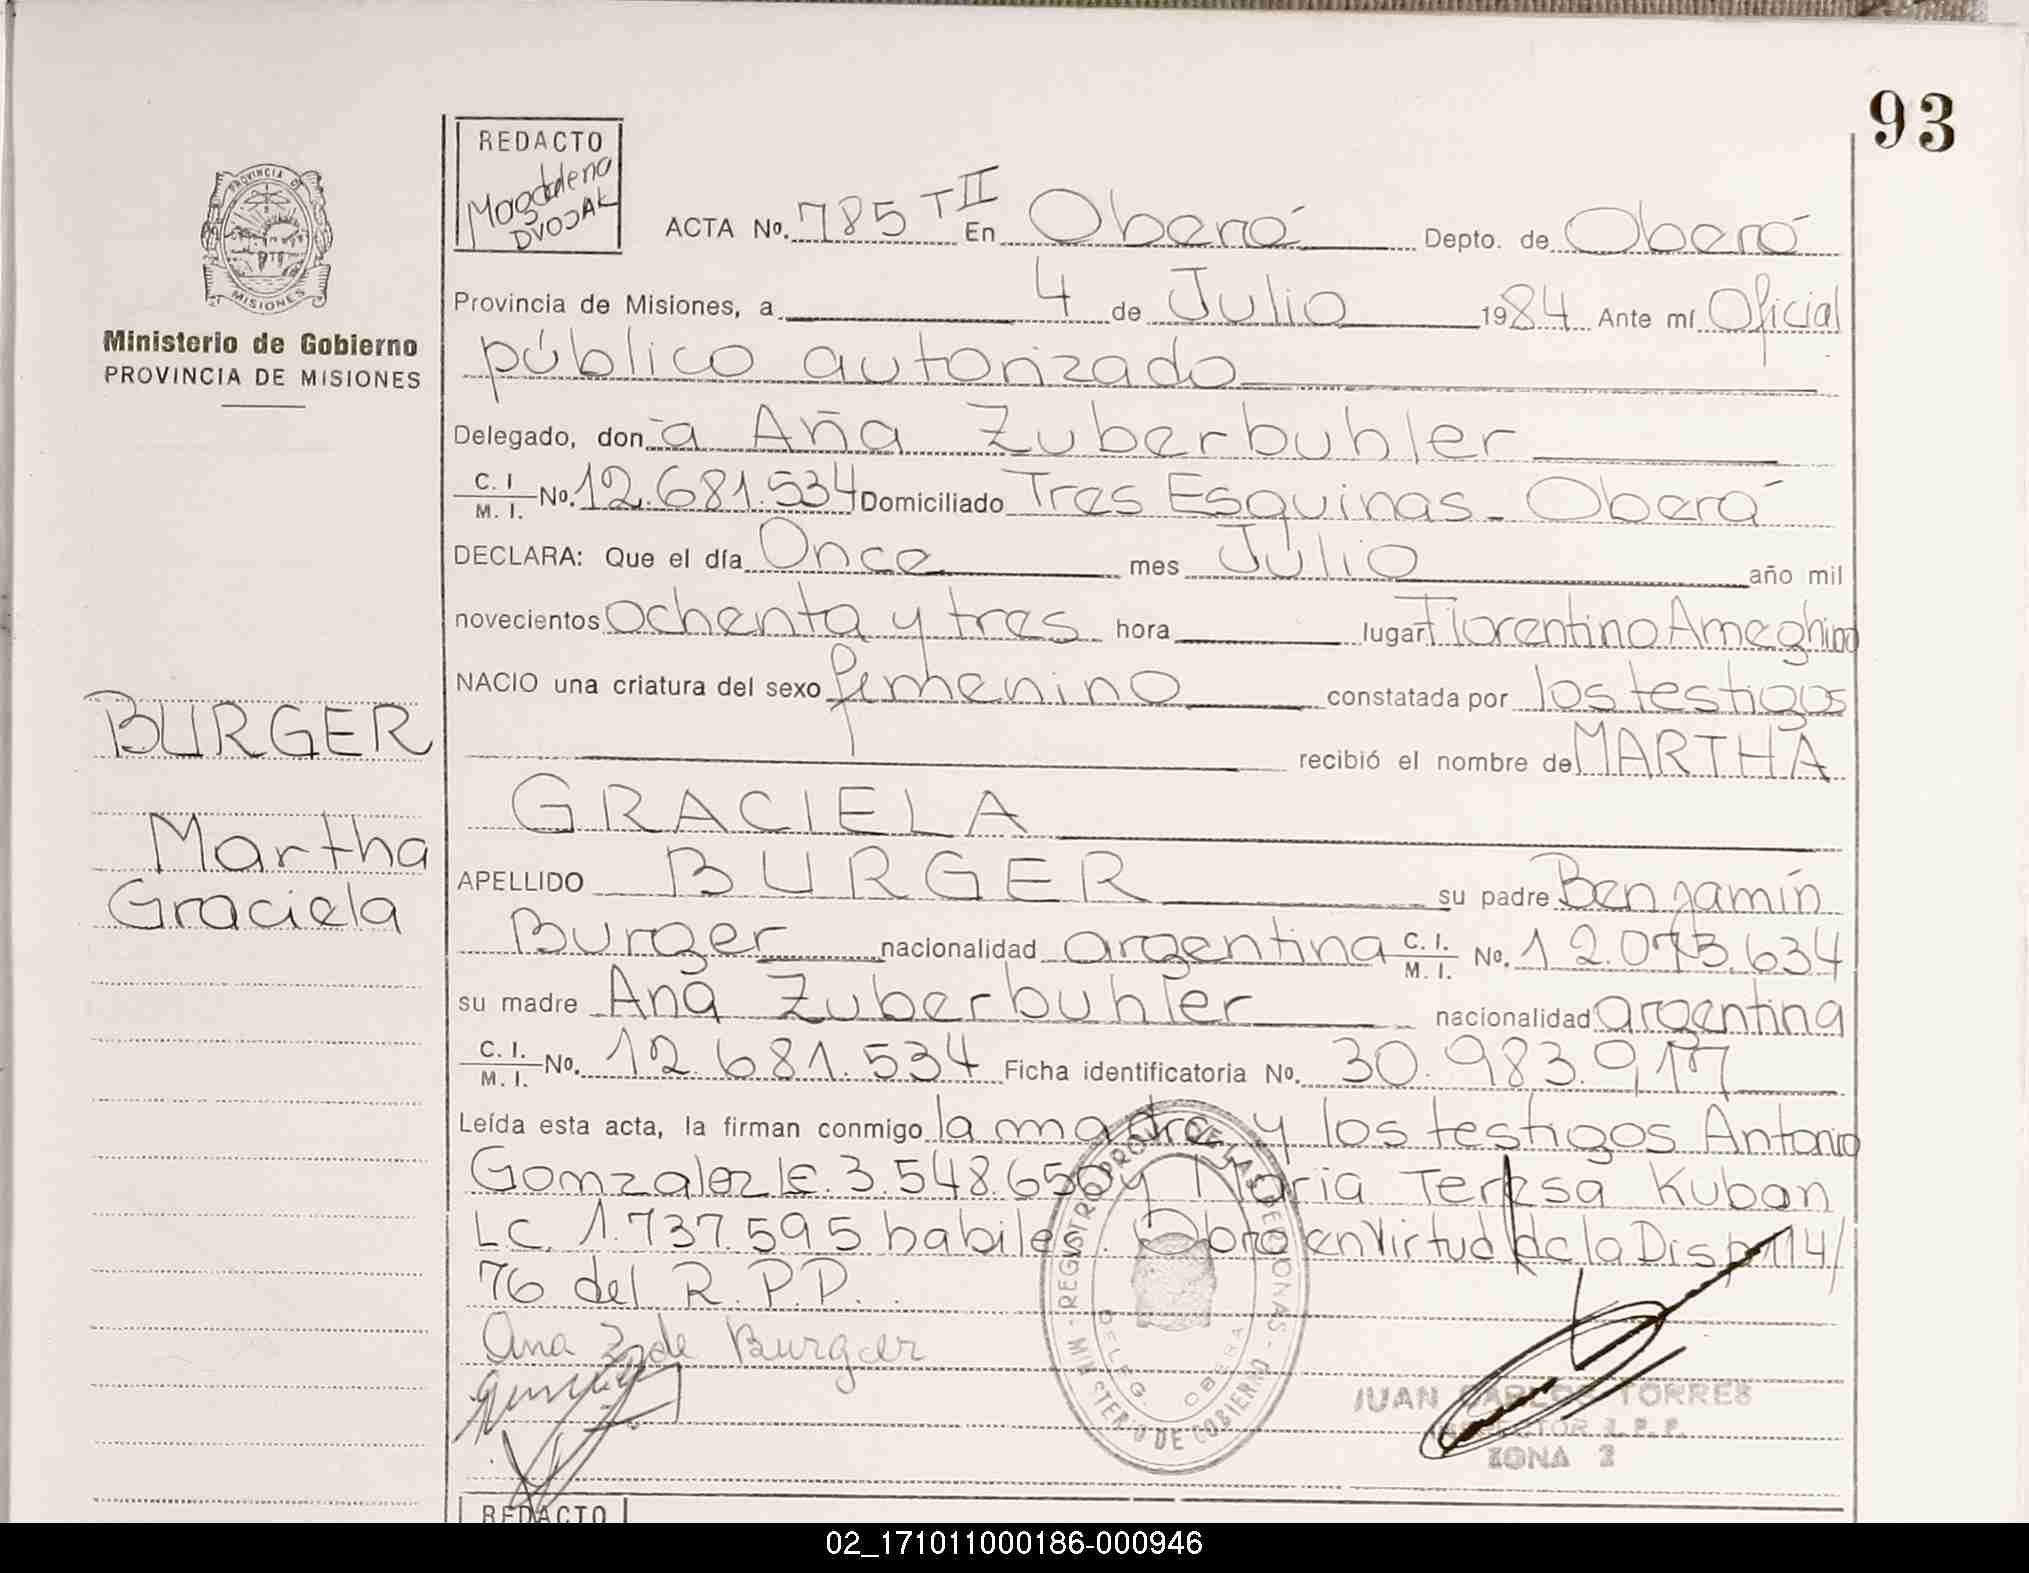 93
REDACTO
Magdalena
DVOJAK
PROVINCIA DE
MISIONES
Ministerio de Gobierno
PROVINCIA DE MISIONES
ACTA No. 785 T II En Oberá Depto. de Oberá
Provincia de Misiones, a 4 de Julio 1984 Ante mí Oficial
público autorizado
Delegado, don a Aña Zuberbuhler
C. I / M. I. No. 12.681.534 Domiciliado Tres Esquinas - Oberá
DECLARA: Que el día Once mes Julio año mil
novecientos ochenta y tres hora lugar Florentino Ameghino
NACIO una criatura del sexo femenino constatada por los testigos
recibió el nombre de MARTHA
GRACIELA
APELLIDO BURGER su padre Benjamín
Burger nacionalidad argentina C. I. / M. I. No. 12.073.634
su madre Ana Zuberbuhler nacionalidad argentina
C. I. / M. I. No. 12.681.534 Ficha identificatoria No. 30.983.917
Leída esta acta, la firman conmigo la madre y los testigos Antonio
Gonzalez LE. 3.548.650 y Maria Teresa Kuban
LC. 1.737.595 habiles. Obro en Virtud de la Disp 114/
76 del R.P.P.
Ana Z de Burger
BURGER
Martha
Graciela
REGISTRO PROV. DE LAS PERSONAS - MINISTERIO DE GOBIERNO
DELEG. OBERA
JUAN CARLOS TORRES
ZONA 2
REDACTO
02_171011000186-000946